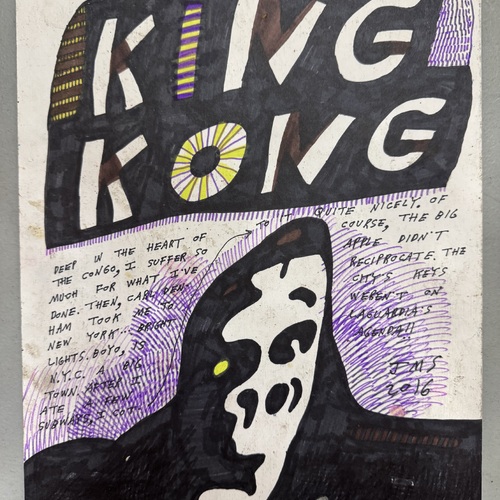 KING
KONG
DEEP IN THE HEART OF
THE CONGO, I SUFFER SO
MUCH FOR WHAT I'VE
DONE. THEN, CARL DEN-
HAM TOOK ME TO
NEW YORK... BRIGHT
LIGHTS. BOYO, IS
N.Y.C. A BIG
TOWN. AFTER I
ATE A FEW
SUBWAYS, I GOT...
TO IT QUITE NICELY. OF
COURSE, THE BIG
APPLE DIDN'T
RECIPROCATE. THE
CITY'S KEYS
WEREN'T ON
LAGUARDIA'S
AGENDA!!
JMS
2016